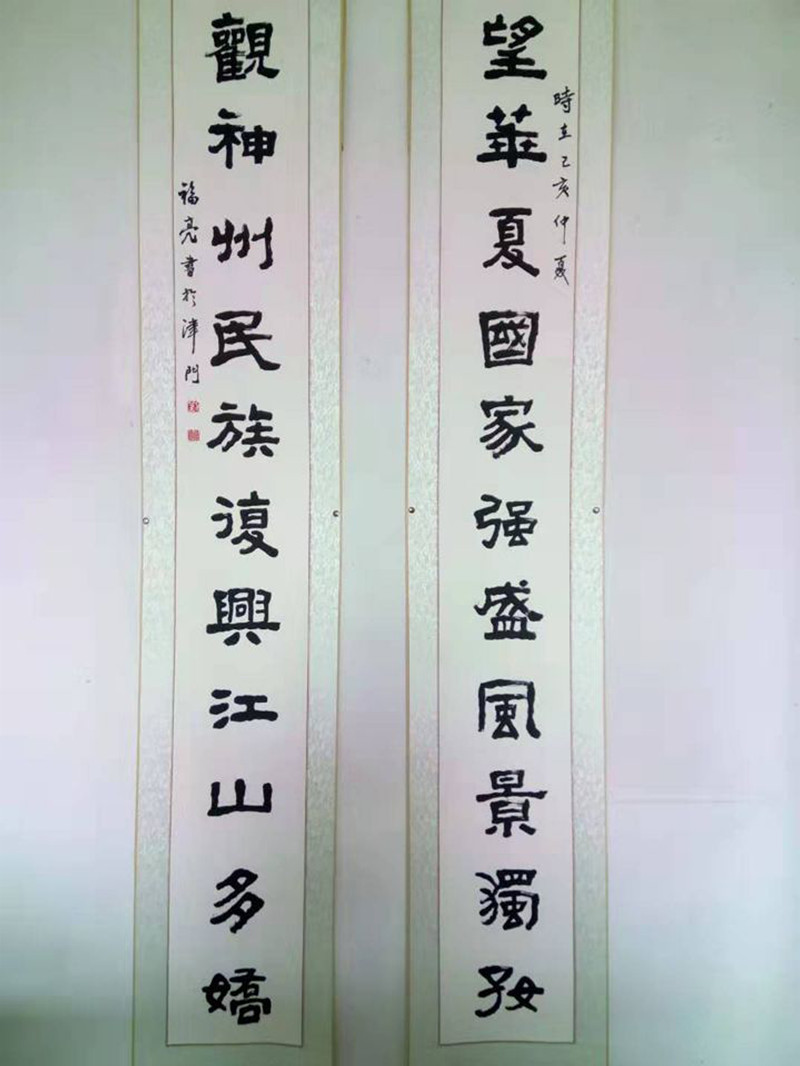 時在己亥仲夏
望華夏國家强盛風景獨好
觀神州民族復興江山多嬌
福亮書於津門